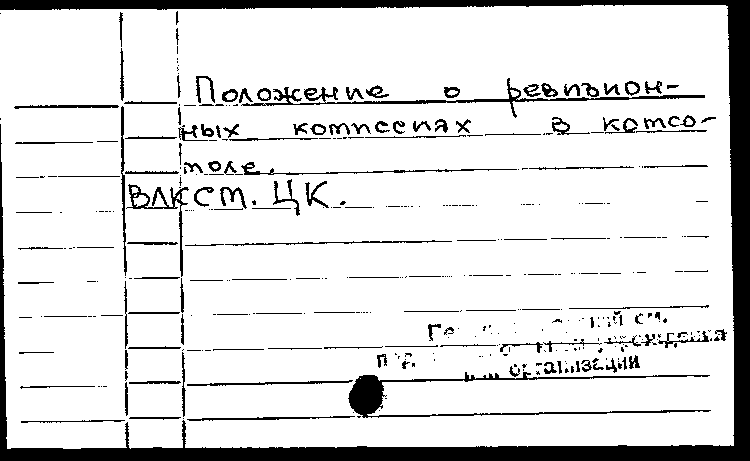 Положение о ревизион-
ных комиссиях в комсо-
моле.
ВЛКСМ. ЦК.
см.
учреждения
организации